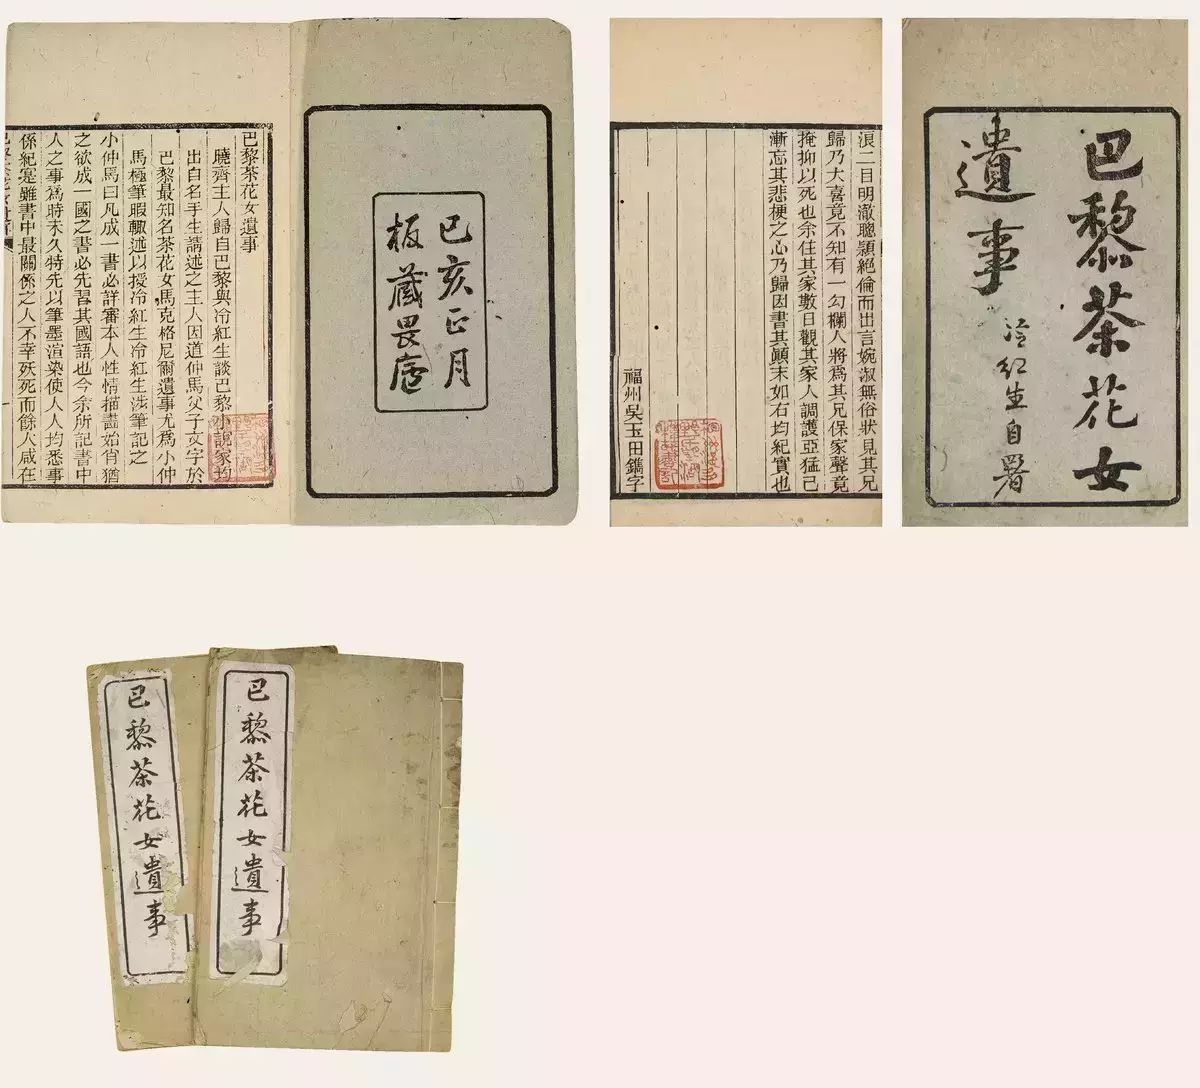 己亥正月
板藏畏廬
巴黎茶花女遺事
曉齋主人歸自巴黎與冷紅生談巴黎小說家均
出自名手生請述之主人因道仲馬父子文字於
巴黎最知名茶花女馬克格尼爾遺事尤爲小仲
馬極筆暇輒述以授冷紅生冷紅生涉筆記之
小仲馬曰凡成一書必詳審本人性情描畫始肖猶
之欲成一國之書必先習其國語也今余所記書中
人之事爲時未久特先以筆墨渲染使人人均悉事
係紀寔雖書中最關係之人不幸殀死而餘人咸在
二目明澈聰穎絕倫而出言婉淑無俗狀見其兄
歸乃大喜竟不知有一勾欄人將爲其兄保家聲竟
掩抑以死也余住其家數日觀其家人調護亞猛己
漸忘其悲梗之心乃歸因書其顛末如右均紀實也
福州吳玉田鐫字
巴黎茶花女
遺事
冷紅生自署
巴黎茶花女遺事
巴黎茶花女遺事